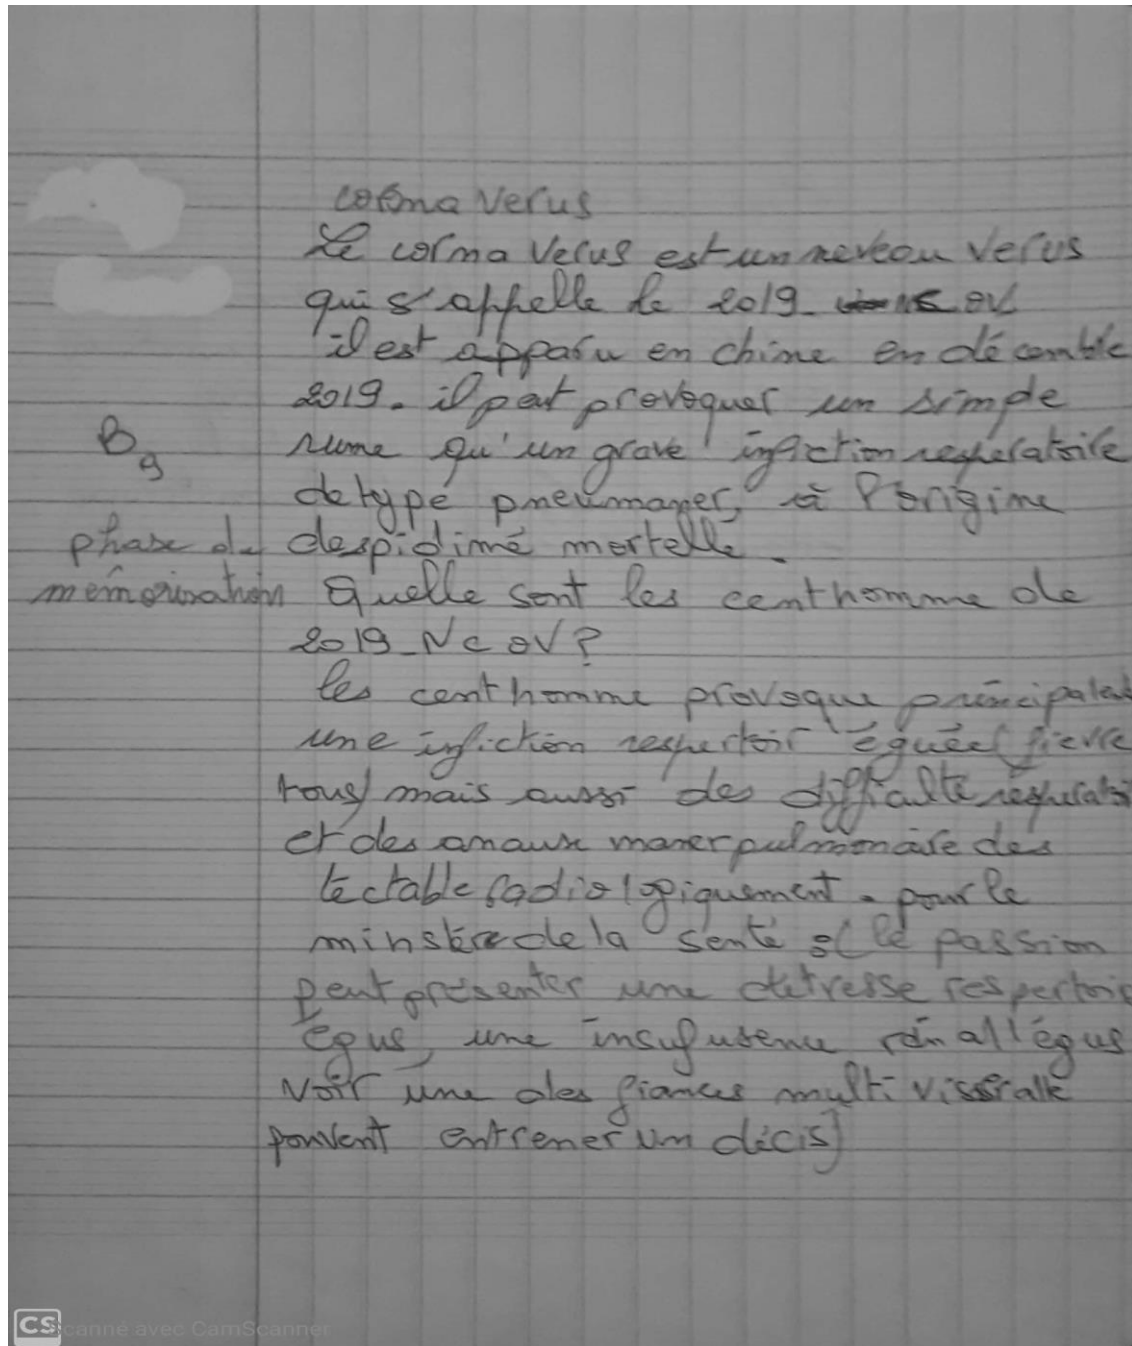 corma verus
Le corma Verus est un neveau verus
qui s'appelle le 2019- OV
il est apparu en chine en décemble
2019. il peut provoquer un simple
B9
rume qu'un grave infiction resperatoire
de type pneumaner, à l'origine
phase de
despidimé mortelle.
mémorisation
Quelle sont les centhomme de
2019-NcoV?
les centhomme provoque principalent
une infiction respertoir éguée (fievre
tous) mais aussi des difficulté
et des anaux maner pulmonaire des
tectable radiologiquement. pour le
minstère de la senté le passion
peut présenter une detresse respertoir
égus, une insufusence rénall égus
voir une des fiances multi visserale
pouvent entremer un décis)
CS Scanné avec CamScanner